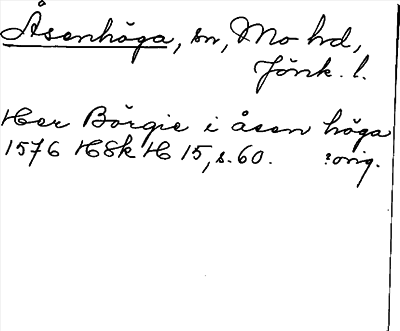 Åsenhöga, sn, Mo hd,
Jönk. l.
Her Börgie i åsen höga
1576 HSkH 15, s. 60. :orig.